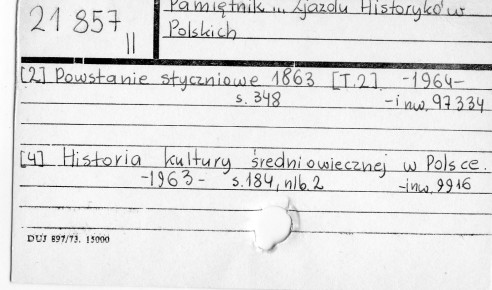 21 857
II
Pamiętnik ... Zjazdu Historyków
Polskich
[2] Powstanie styczniowe 1863 [T.2] -1964-
s. 348 -inw. 97334
[4] Historia kultury średniowiecznej w Polsce.
-1963- s. 184, nlb. 2 -inw. 9916
DUJ 897/73. 15000